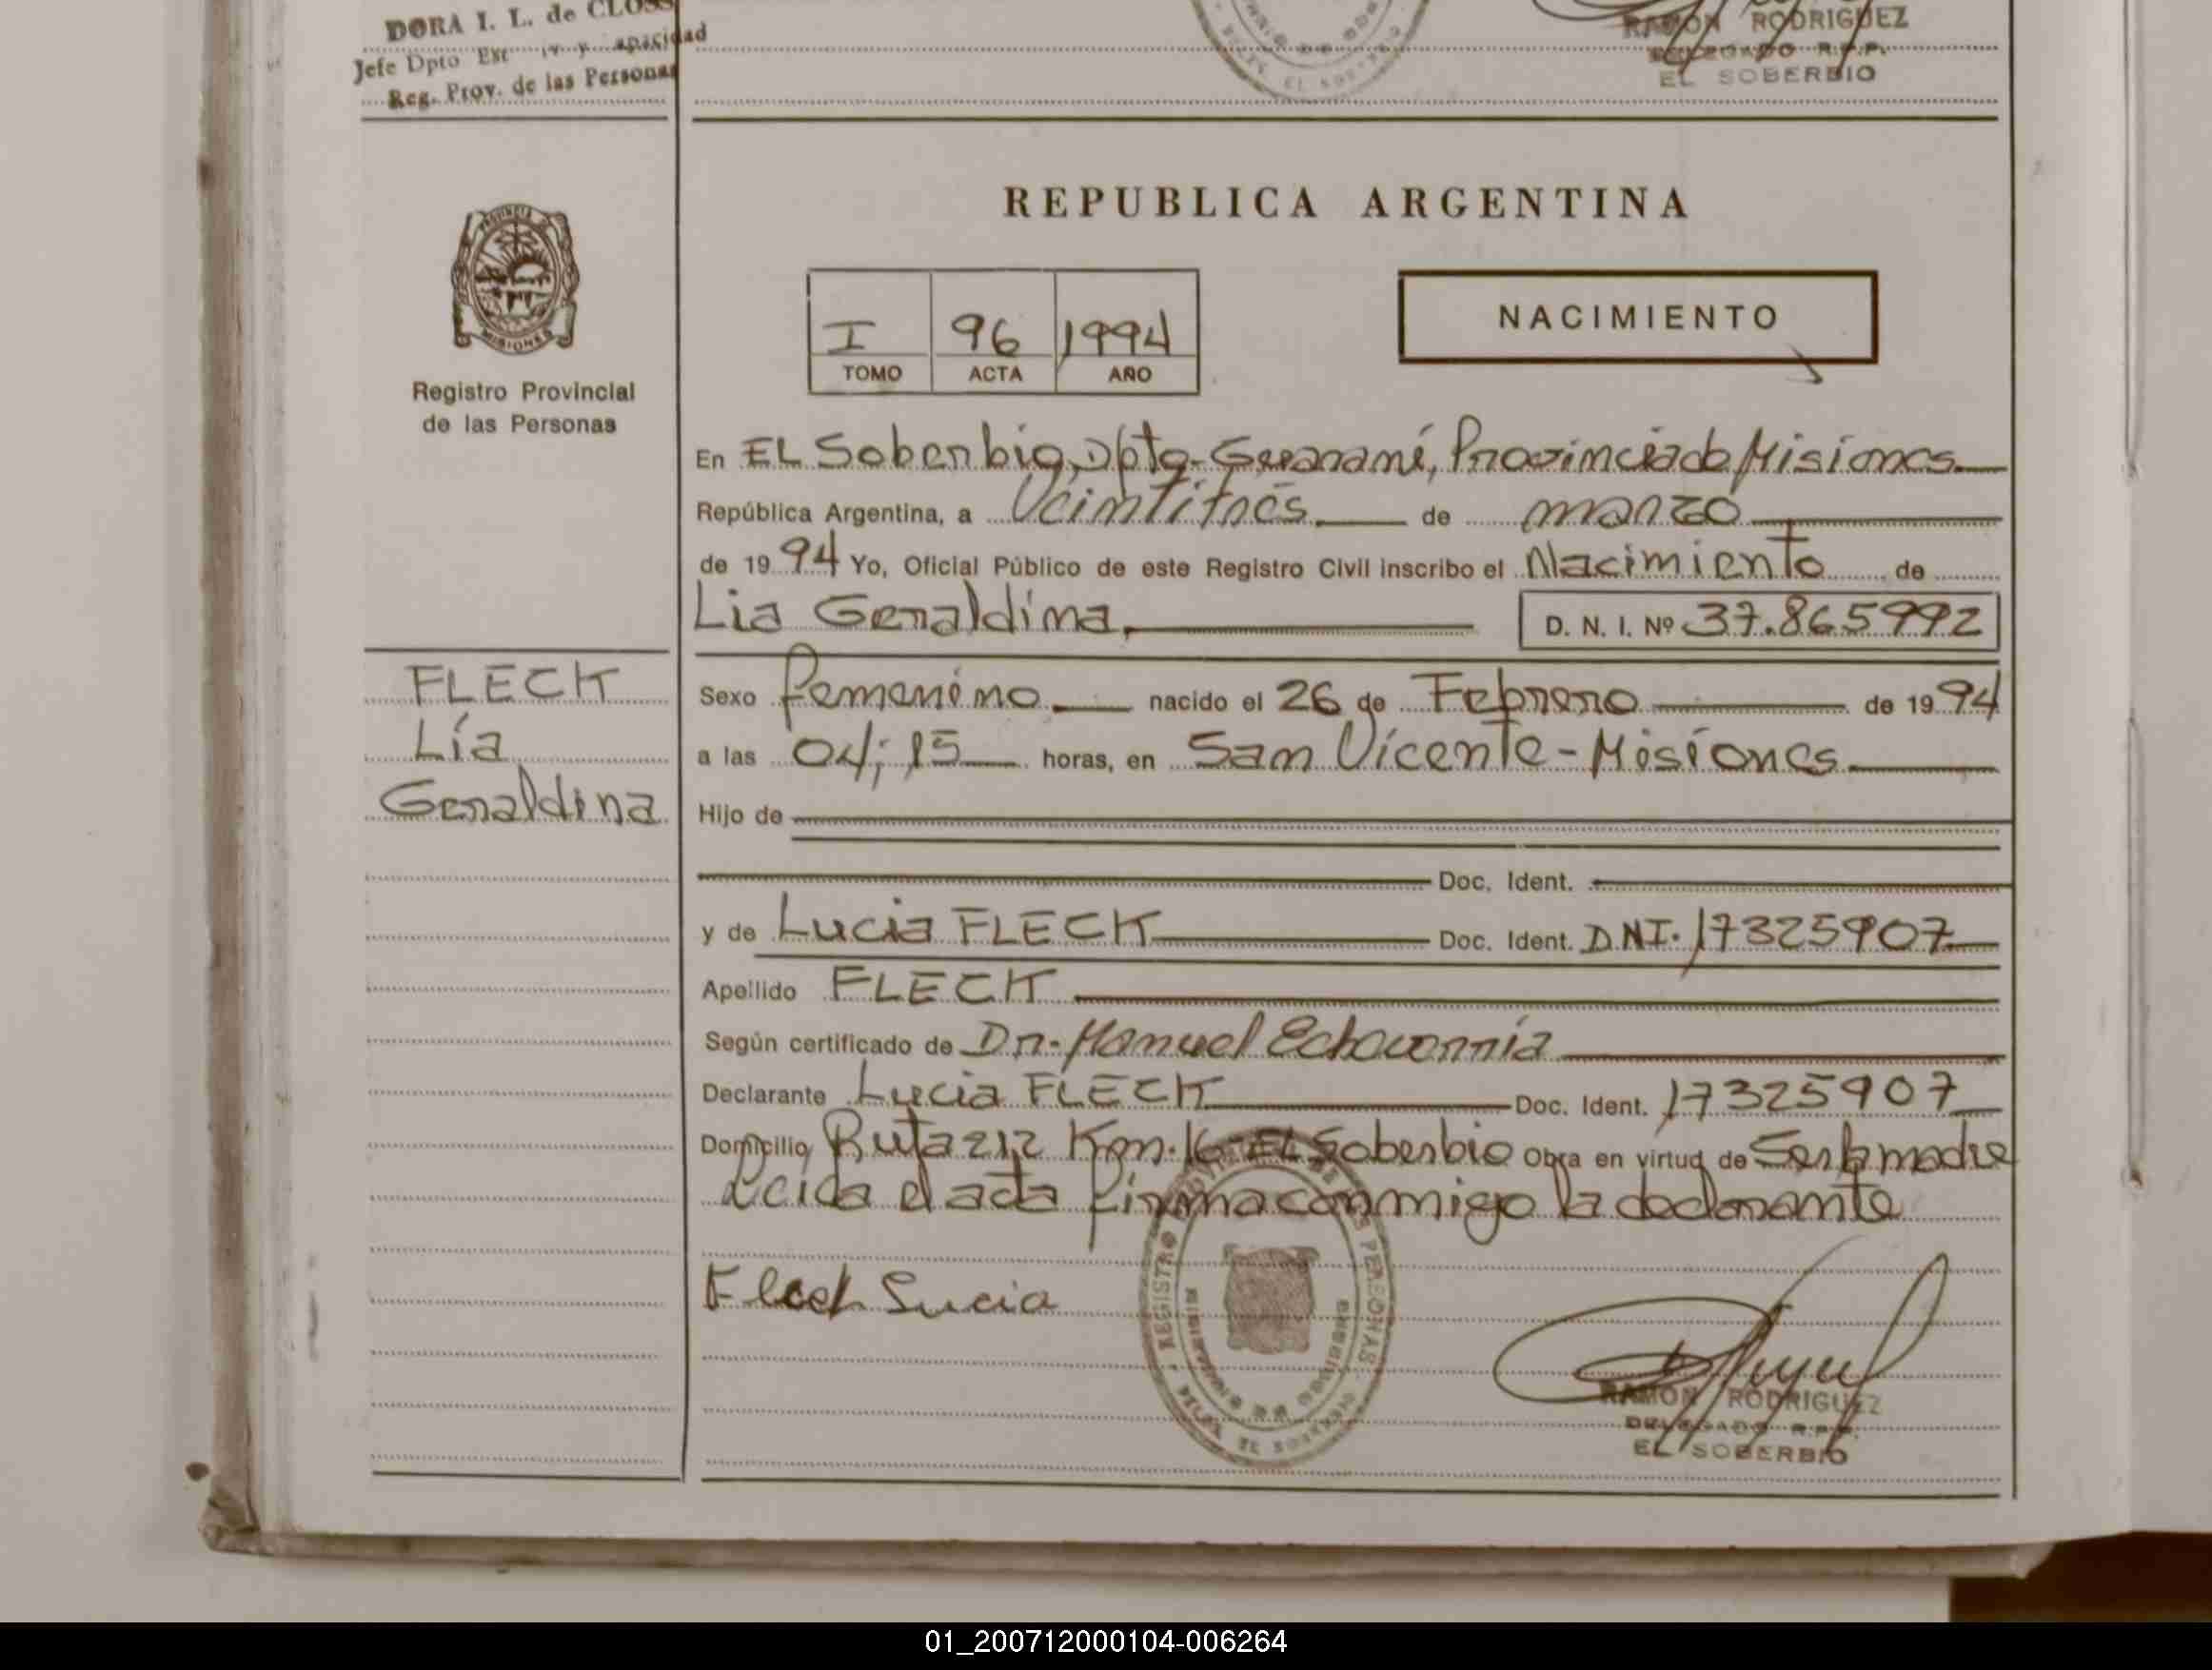 DORA I. L. de CLOSS
Jefe Dpto Est iv. y apacidad
Reg. Prov. de las Personas
RAMON RODRIGUEZ
DELEGADO R.P.P.
EL SOBERBIO
PROVINCIA DE
MISIONES
Registro Provincial
de las Personas
REPUBLICA ARGENTINA
I 96 1994
TOMO ACTA AÑO
NACIMIENTO
En EL Soberbio, Dpto- Guaraní, Provincia de Misiones
República Argentina, a Veintitrés de marzo
de 1994 Yo, Oficial Público de este Registro Civil inscribo el Nacimiento de
Lia Geraldina
D. N. I. Nº 37.865992
FLECK
Lía
Geraldina
Sexo femenino nacido el 26 de Febrero de 1994
a las 04;15 horas, en San Vicente - Misiones
Hijo de
Doc. Ident.
y de Lucia FLECK Doc. Ident. DNI. 17325907
Apellido FLECK
Según certificado de Dr. Manuel Echeverría
Declarante Lucia FLECK Doc. Ident. 17325907
Domicilio Ruta 212 Km. 16 - EL Soberbio Obra en virtud de Ser la madre
Leida el acta firma conmigo la declarante
Fleck Lucia
REGISTRO PERSONAS
EL SOBERBIO
RAMON RODRIGUEZ
DELEGADO R.P.P.
EL SOBERBIO
01_200712000104-006264